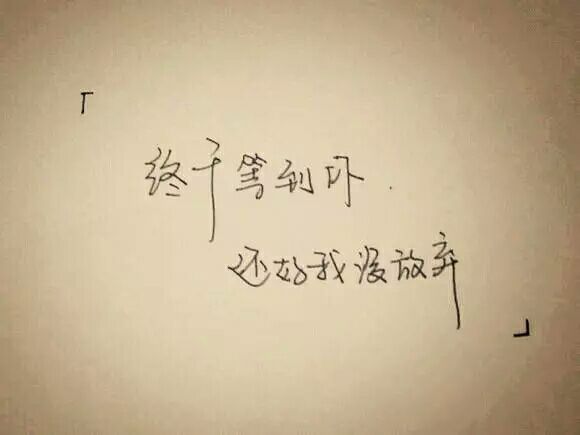 「
终于等到你.
还好我没放弃
」